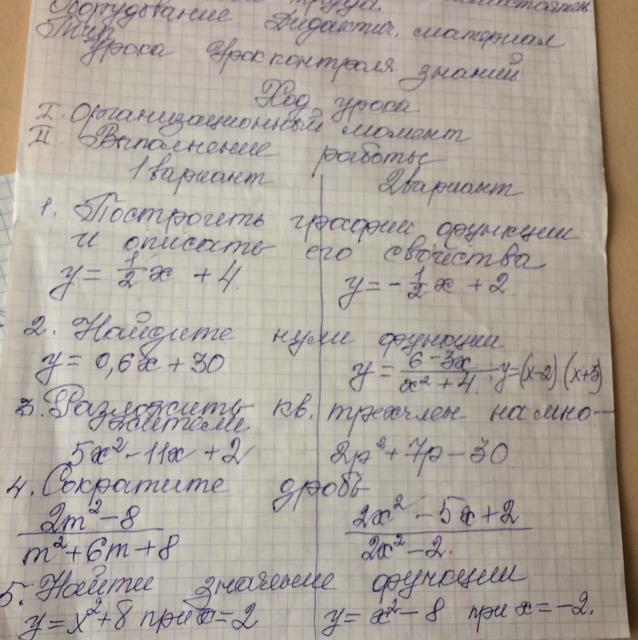 Оборудование Дидактич. материал
Тип
урока Урок контроля знаний
Ход урока
I. Организационный момент
II. Выполнение работы
1 вариант 2 вариант
1. Построить график функции
и описать его свойства
y = 1/2 x + 4 y = -1/2 x + 2
2. Найдите нули функции
y = 0,6x + 30 y = (6 - 3x)/(x² + 4) y = (x-2) (x+3)
3. Разложить кв. трехчлен на мно-
жители
5x² - 11x + 2 2p² + 7p - 30
4. Сократите дробь
(2m² - 8)/(m² + 6m + 8) (2x² - 5x + 2)/(2x² - 2.)
5. Найти значение функции
y = x² + 8 при x = 2 y = x² - 8 при x = -2.